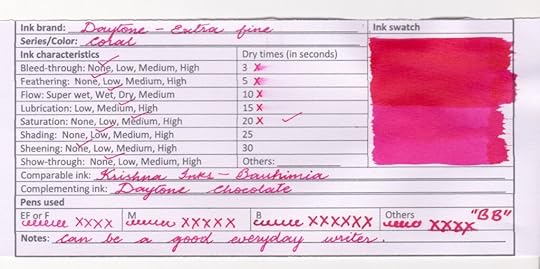 Ink brand: Daytone - Extra fine Ink swatch
Series/Color: Coral
Ink characteristics Dry times (in seconds)
Bleed-through: None, Low, Medium, High 3 x
Feathering: None, Low, Medium, High 5 x
Flow: Super wet, Wet, Dry, Medium 10 x
Lubrication: Low, Medium, High 15 x
Saturation: None, Low, Medium, High 20 x ✓
Shading: None, Low, Medium, High 25
Sheening: None, Low, Medium, High 30
Show-through: None, Low, Medium, High Others:
Comparable ink: Krishna Inks - Bauhimia
Complementing ink: Daytone Chocolate
Pens used
EF or F M B Others "BB"
xxxx xxxxx xxxxxx xxxx
Notes: Can be a good everyday writer.